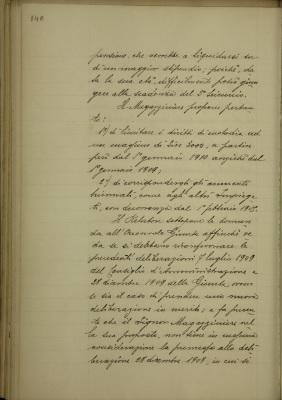 140
pensione, che verrebbe a liquidarsi su
di un maggio stipendio; poichè, da
ta la sua età, difficilmente potrà giun
gere alla scadenza del 2° biennio.
Il Magazziniere propone pertan
to:
1°) di limitare i diritti di custodia ad
un maximum di Lire 2000, a partire
però dal 1° gennaio 1910 anzichè dal
1° gennaio 1909;
2°) di corrispondergli gli aumenti
biennali, come agli altri Impiega
ti, con decorrenza dal 1° febbraio 1908.
Il Relatore sottopone la doman
da all'Onorevole Giunta affinchè ve
da se si debbano riconfermare le
precedenti deliberazioni 7 luglio 1909
del Consiglio d'Amministrazione e
28 dicembre 1909 della Giunta, ovve
ro sia il caso di prendere una nuova
deliberazione in merito; e fa presen
te che il Signor Magazziniere nel
la sua proposta, non tiene in nessuna
considerazione la premessa alla deli
berazione 28 dicembre 1909, in cui si